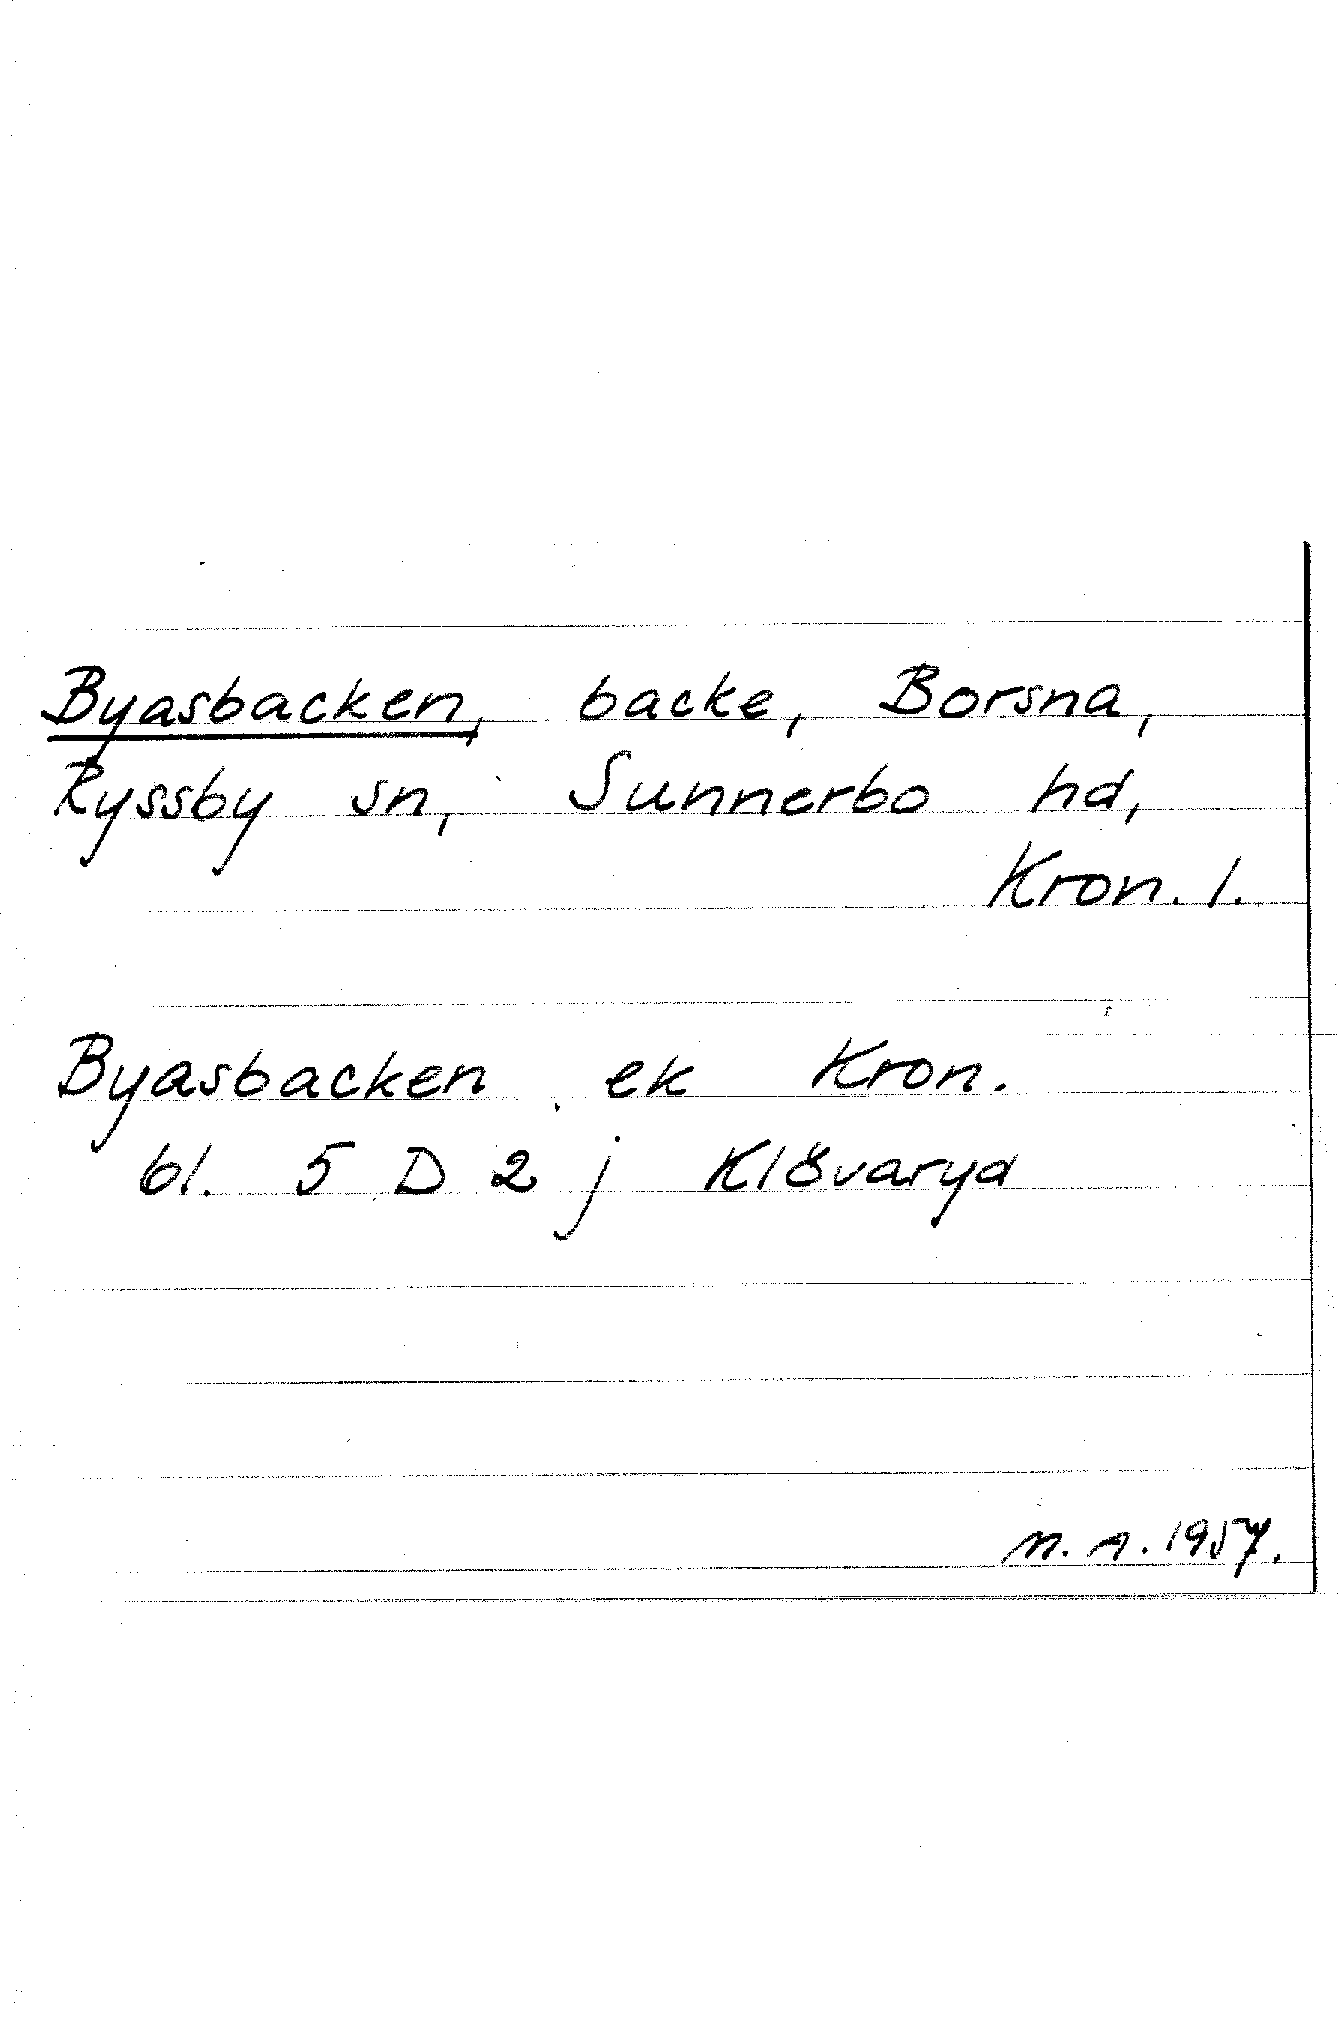 Byasbacken, backe, Borsna,
Ryssby sn, Sunnerbo hd,
Kron. l.
Byasbacken ek Kron.
bl. 5 D 2 j Klövaryd
M. A. 1957.